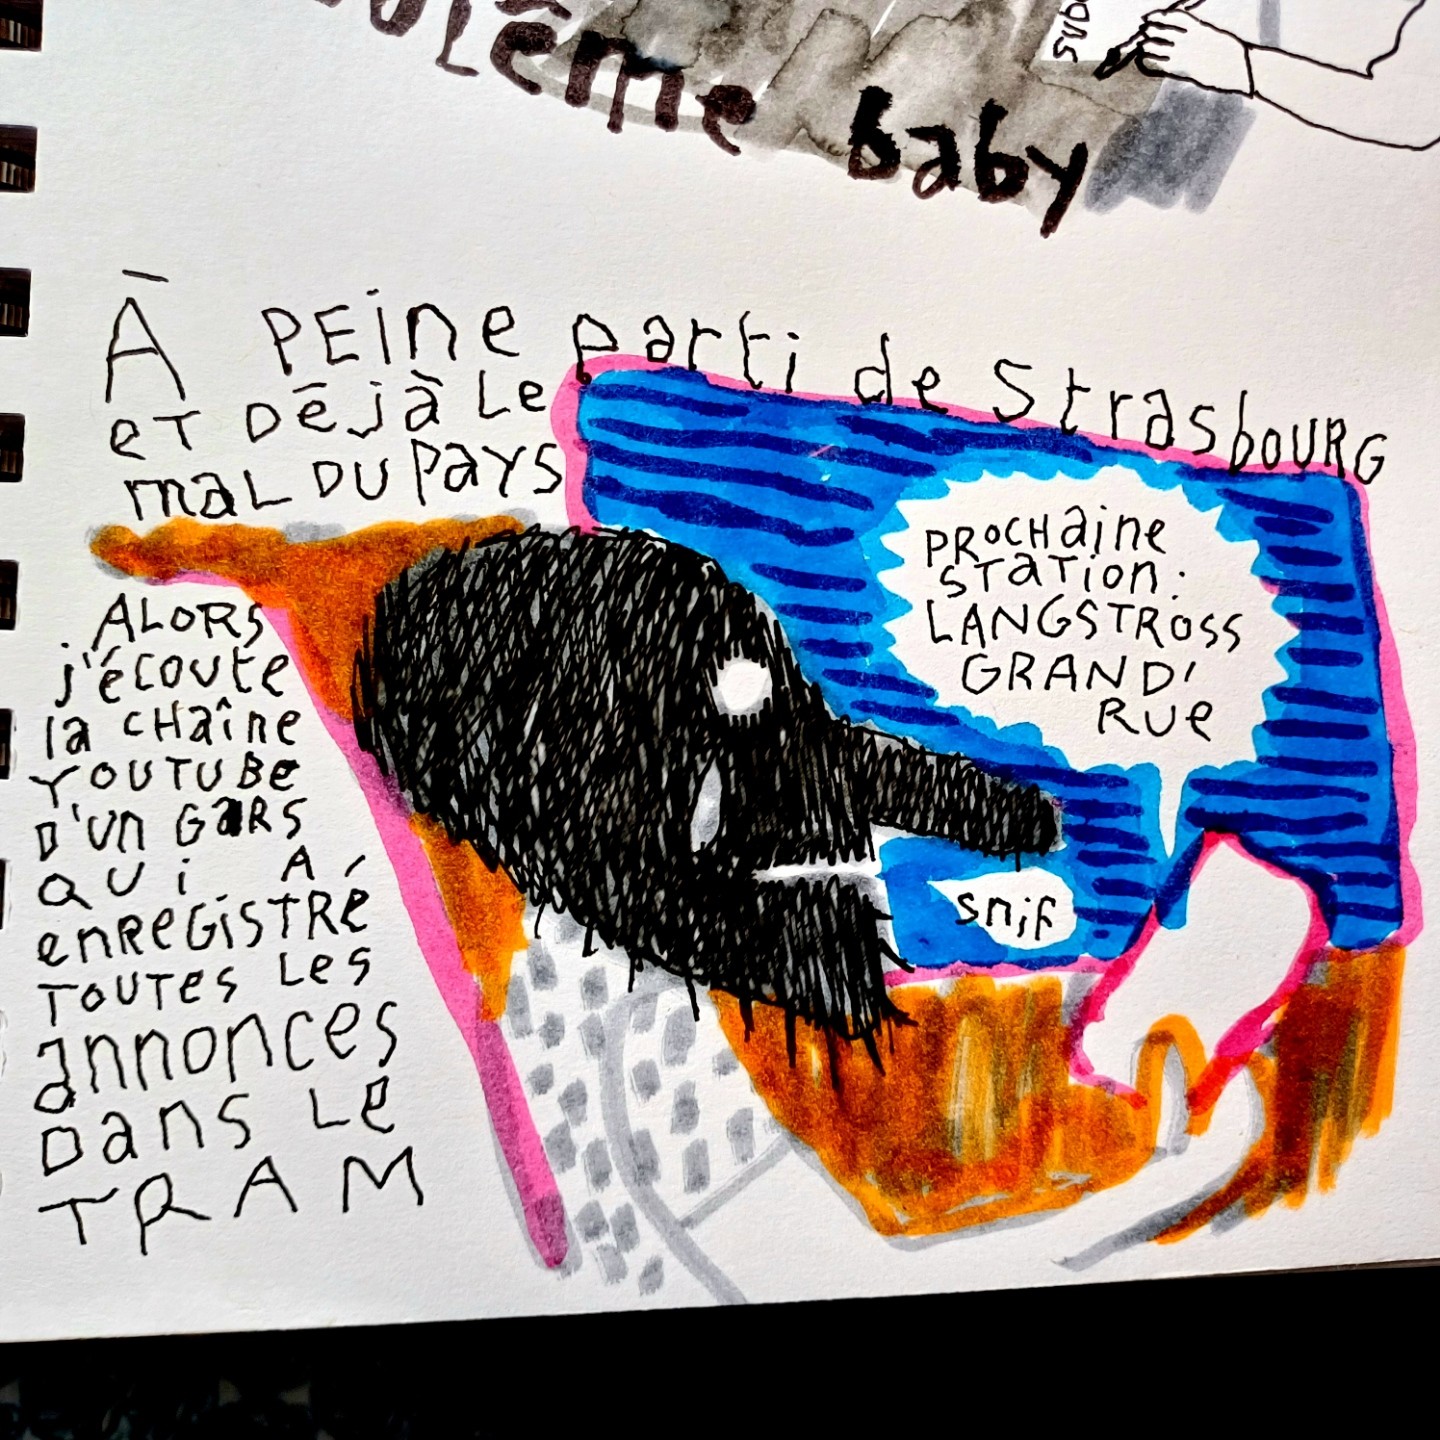 Baby
À PEINE parti de Strasbourg
et DÉJÀ Le
mal DU Pays
ALORS
j'écoute
la CHaîne
YOUTUBe
D'un GaRS
QUi A
enReGiSTRé
TOUTES LES
annonces
Dans Le
TRAM
PROCHaine
STaTion:
LANGSTROSS
GRAND'
RUe
snif